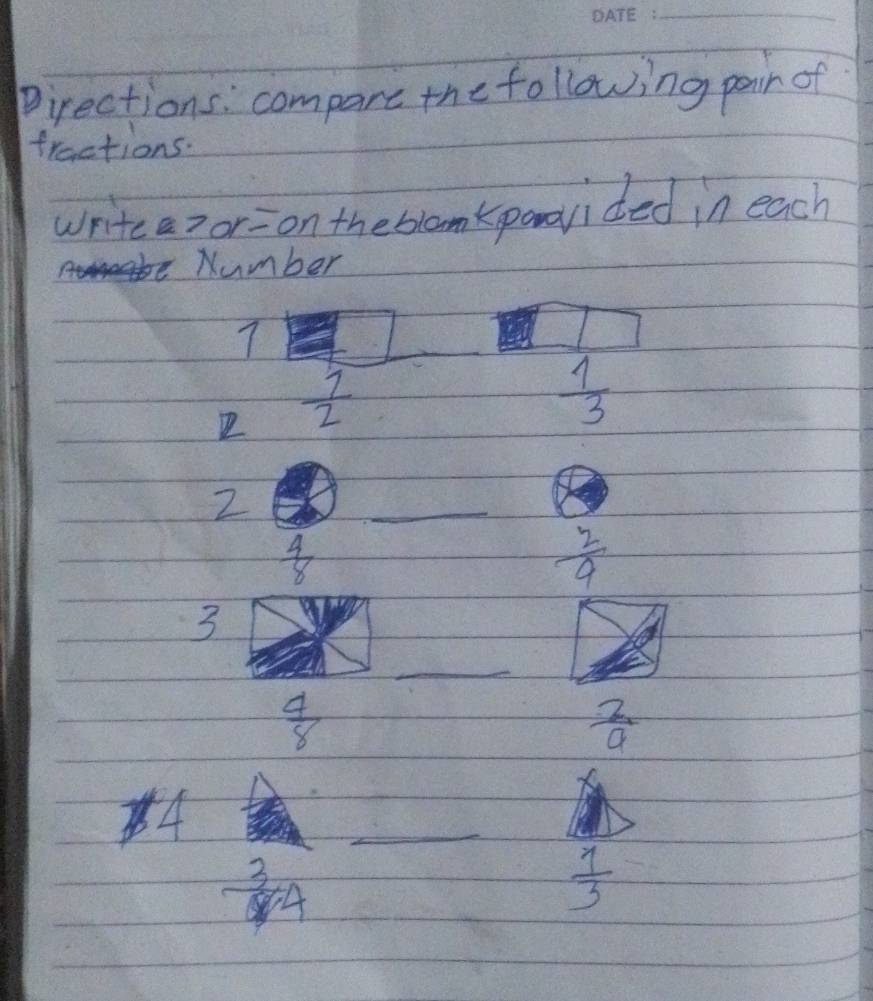 DATE :
Directions: compare the following pair of
fractions.
Write < > or = on the blank provided in each
Number
1
1/2 1/3
2
4/8 2/4
3
4/8 2/4
4
3/4 1/3